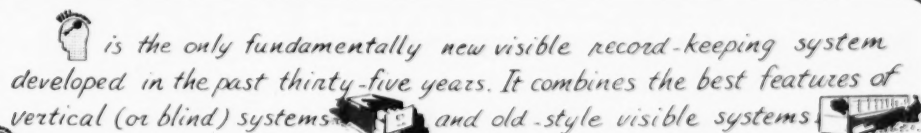 is the only fundamentally new visible record-keeping system
developed in the past thirty-five years. It combines the best features of
vertical (or blind) systems and old-style visible systems